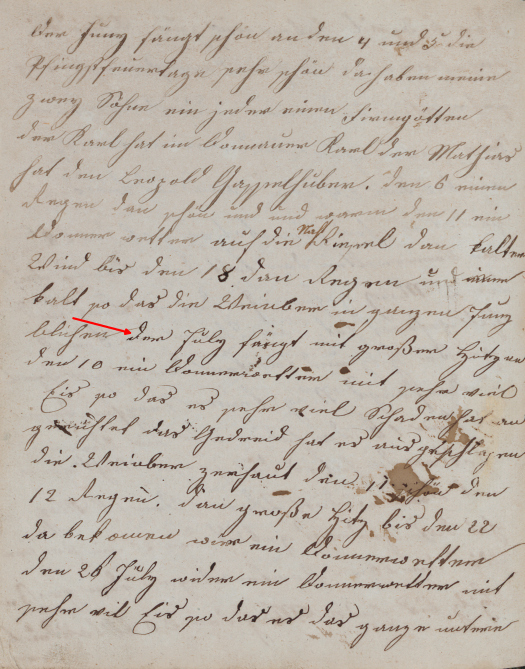 der Juny fängt schön an den 4 und 5 die
Pfingstfeuertage sehr schön da haben meine
zwey Sohne ein jeder einen Firmgötten
der Karl hat im Donnauer Karl der Mathias
hat den Leopold Gasselhuber. den 6 einen
Regen dan schön und und warm den 11 ein
Donner wetter auf die Nacht Riesel dan kalter
Wind bis den 18. dan Regen und
kalt so das die Weinber in ganzen Juny
blichen der July fängt mit großer Hitz an
den 10 ein Donnerwetter mit sehr viel
Eis so das es sehr viel Schaden hat an
gerichtet das Gedreid hat es ausgeschlagen
die Weinber zerhaut den 11 schön den
12 Regen. dan große Hitz bis den 22
da bekomen wir ein Donnerwetter
den 26 July wider ein Donnerwetter mit
sehr vil Eis so das es das ganze untere